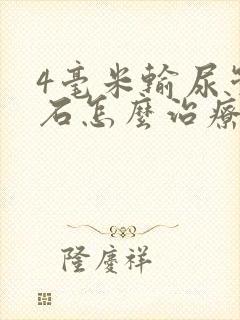 4毫米輸尿管
石怎麼治療
隆慶祥